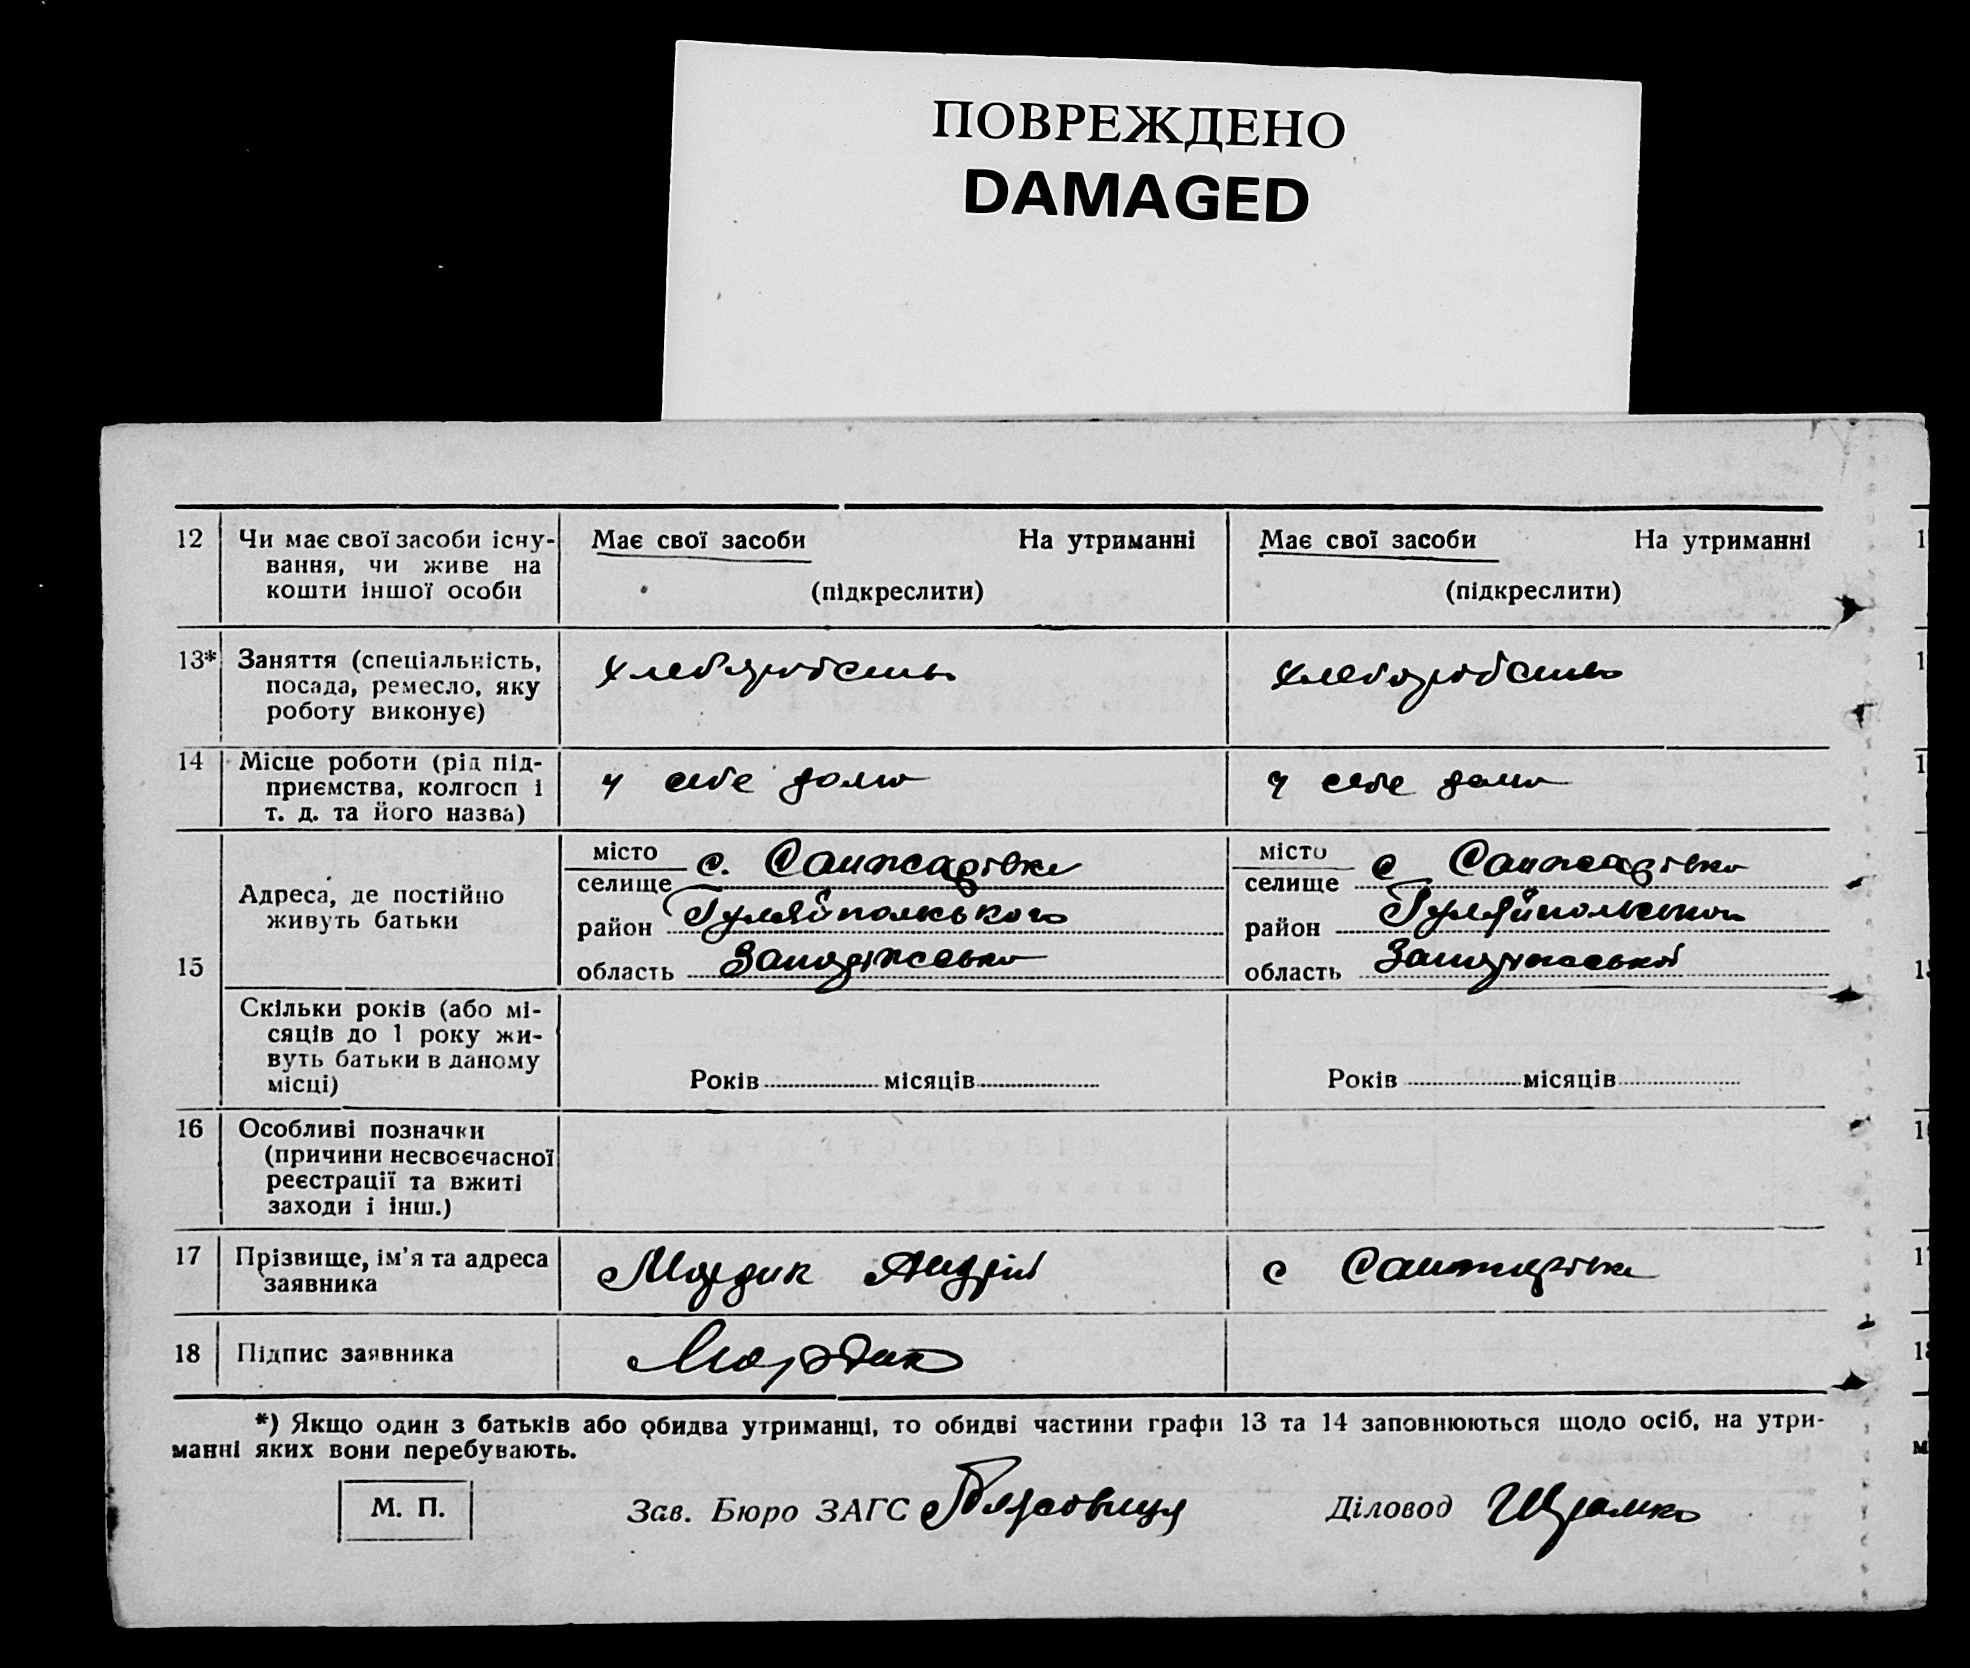 ПОВРЕЖДЕНО
DAMAGED
12 Чи має свої засоби існу-
вання, чи живе на
кошти іншої особи
Має свої засоби На утриманні
(підкреслити)
Має свої засоби На утриманні
(підкреслити)
13* Заняття (спеціальність,
посада, ремесло, яку
роботу виконує)
хлеборобство
хлеборобство
14 Місце роботи (рід під-
приємства, колгосп і
т. д. та його назва)
у себе дома
у себе дома
15 Адреса, де постійно
живуть батьки
місто
селище с. Санжарівка
район Гуляйпольского
область Запоріжсько
місто
селище с Санжарівка
район Гуляйпольского
область Запоріжської
Скільки років (або мі-
сяців до 1 року жи-
вуть батьки в даному
місці)
Років місяців
Років місяців
16 Особливі позначки
(причини несвоєчасної
реєстрації та вжиті
заходи і інш.)
17 Прізвище, ім'я та адреса
заявника
Мордик Андрій
с Санжарівка
18 Підпис заявника
Мордик
*) Якщо один з батьків або обидва утриманці, то обидві частини графи 13 та 14 заповнюються щодо осіб, на утри-
манні яких вони перебувають.
М. П.
Зав. Бюро ЗАГС
Діловод